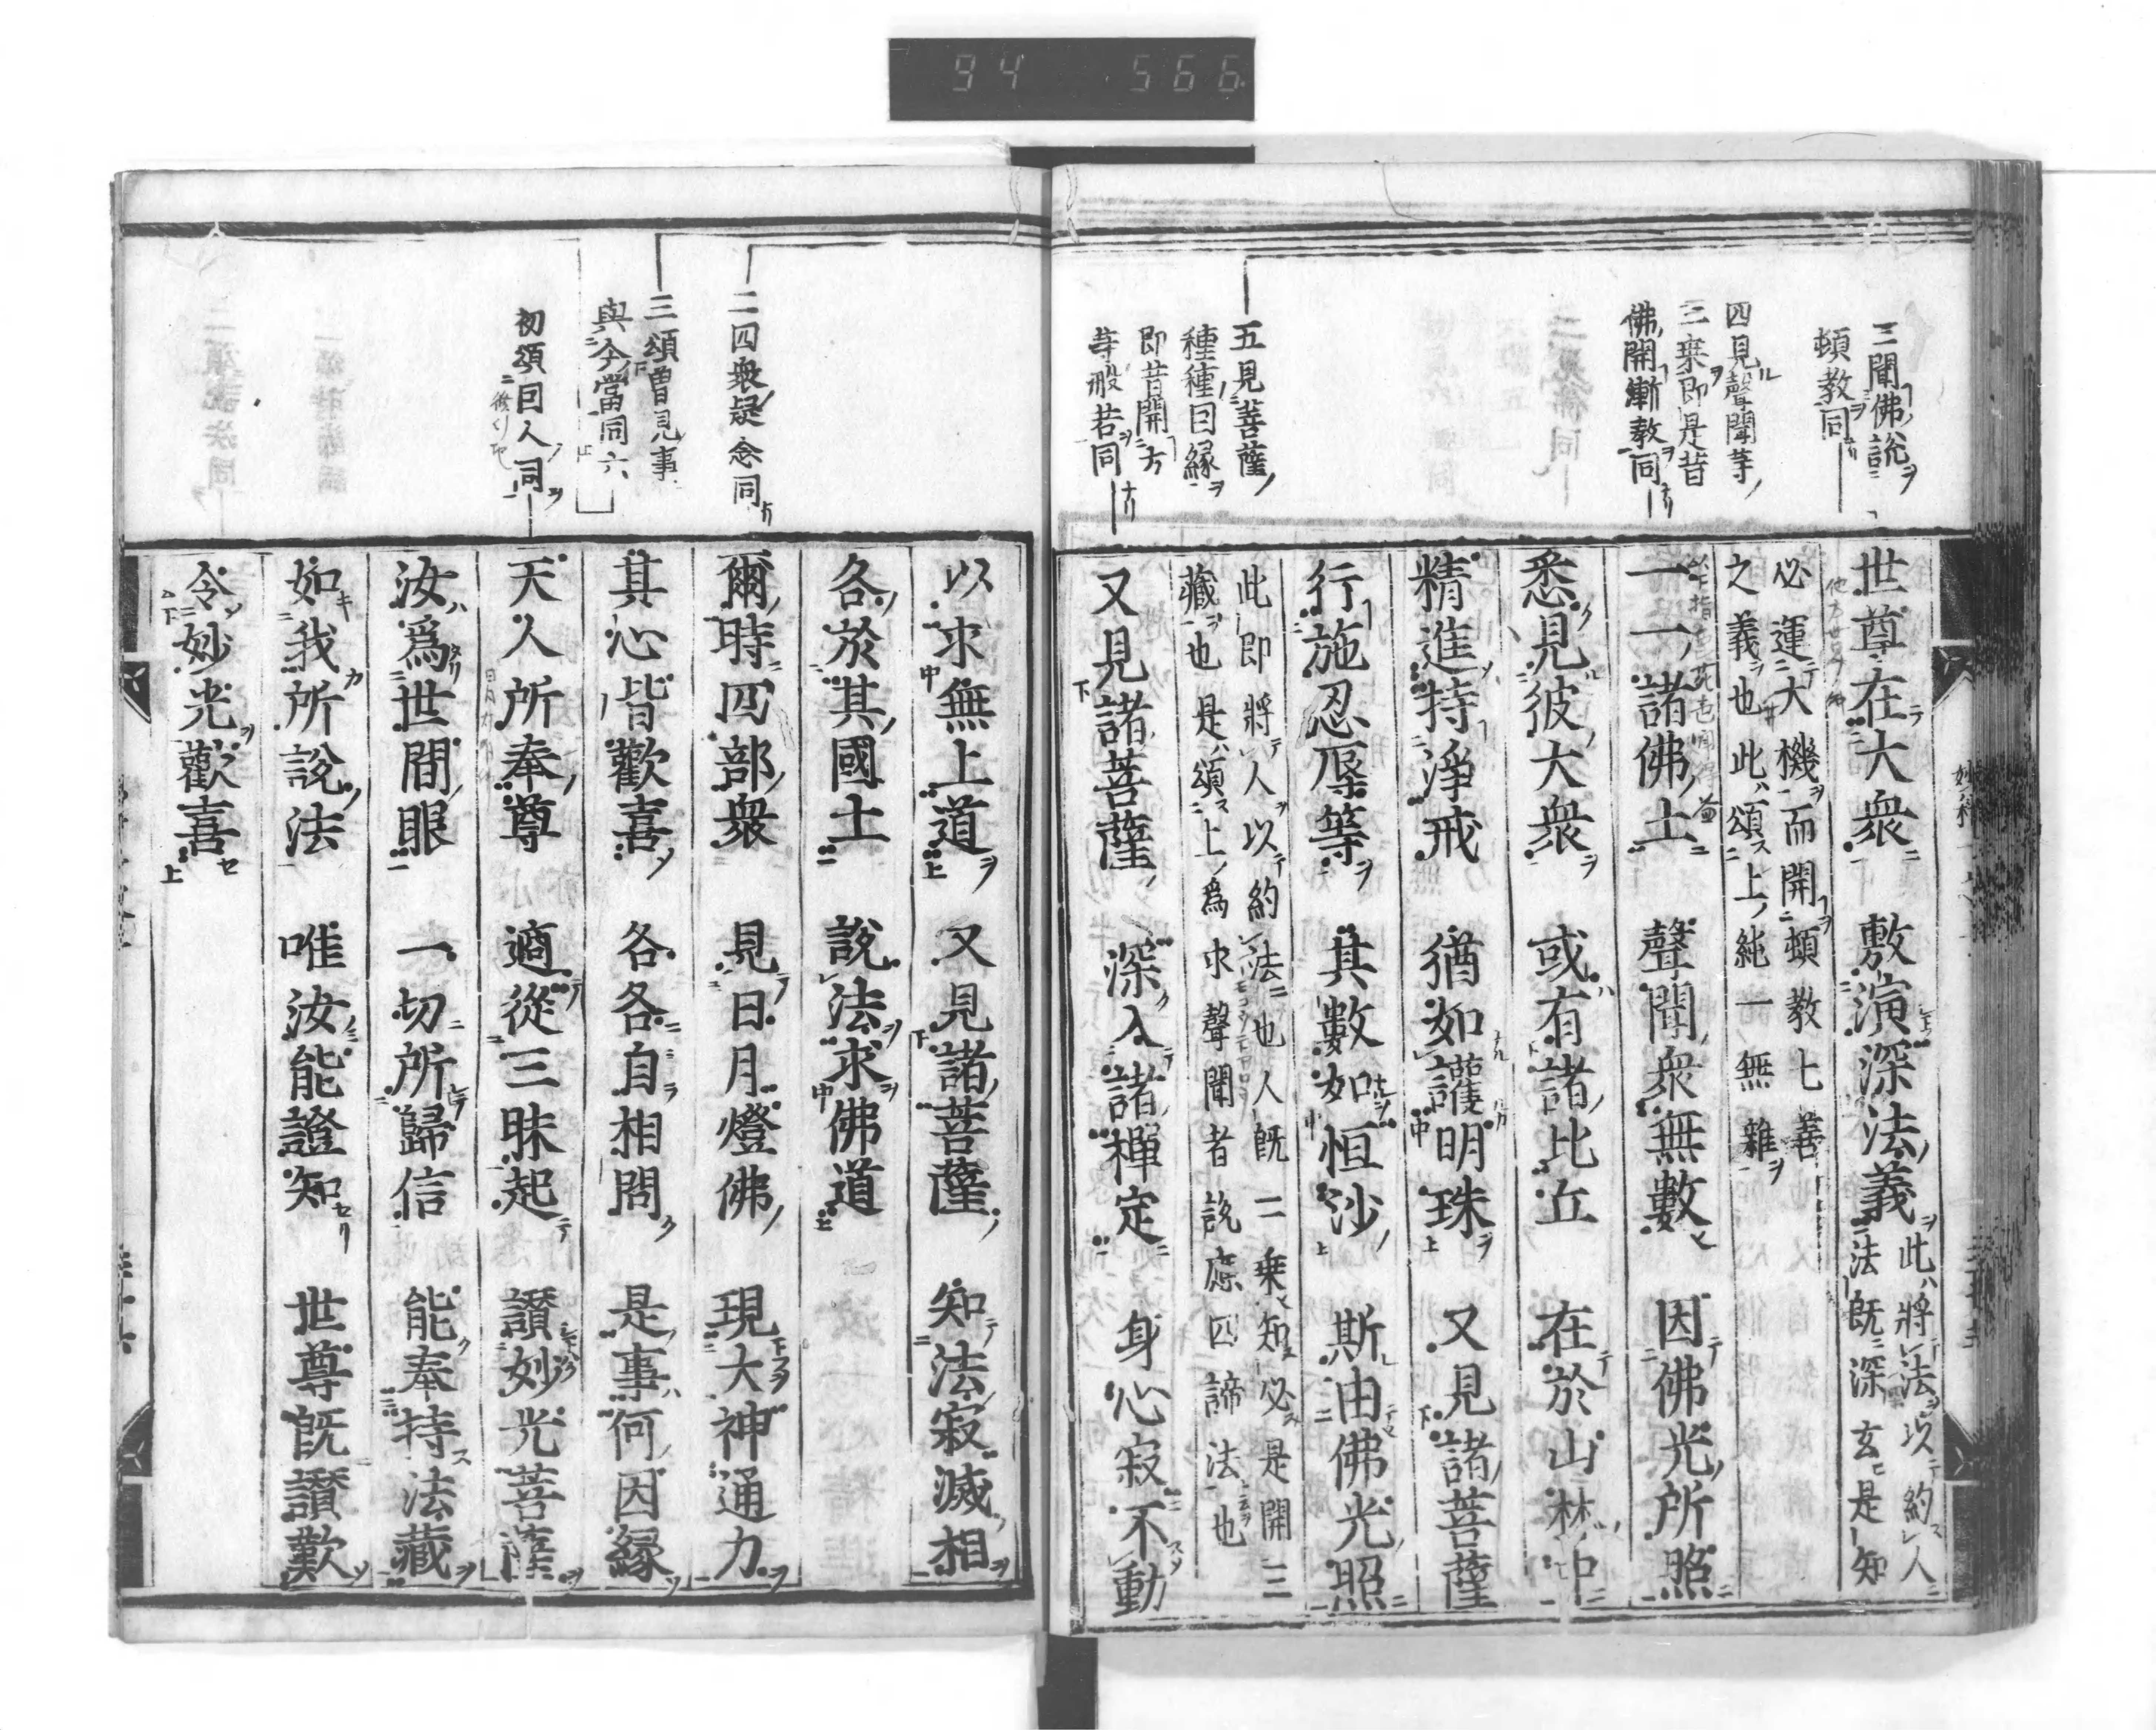 94 566
三聞佛說
頓教同
四見聲聞等
三乗即是昔
佛開漸教同
五見菩薩
種種因緣
即昔開方
等般若同
世尊在大衆 敷演深法義 此將法以約人
法既深玄是知
必運大機而開頓教七善
之義也此頌上純一無雜
一一諸佛土 聲聞衆無數 因佛光所照
悉見彼大衆 或有諸比丘 在於山林中
精進持淨戒 猶如護明珠 又見諸菩薩
行施忍辱等 其數如恒沙 斯由佛光照
此即將人以約法也人既二乗知必是開三
藏也是頌上爲求聲聞者說應四諦法也
又見諸菩薩 深入諸禪定 身心寂不動
二四衆疑念同
三頌曽見事
與今當同六
初頌因人同
以求無上道 又見諸菩薩 知法寂滅相
各於其國土 說法求佛道
爾時四部衆 見日月燈佛 現大神通力
其心皆歡喜 各各自相問 是事何因緣
天人所奉尊 適從三昧起 讃妙光菩薩
汝爲世間眼 一切所歸信 能奉持法藏
如我所說法 唯汝能證知 世尊既讃歎
令妙光歡喜